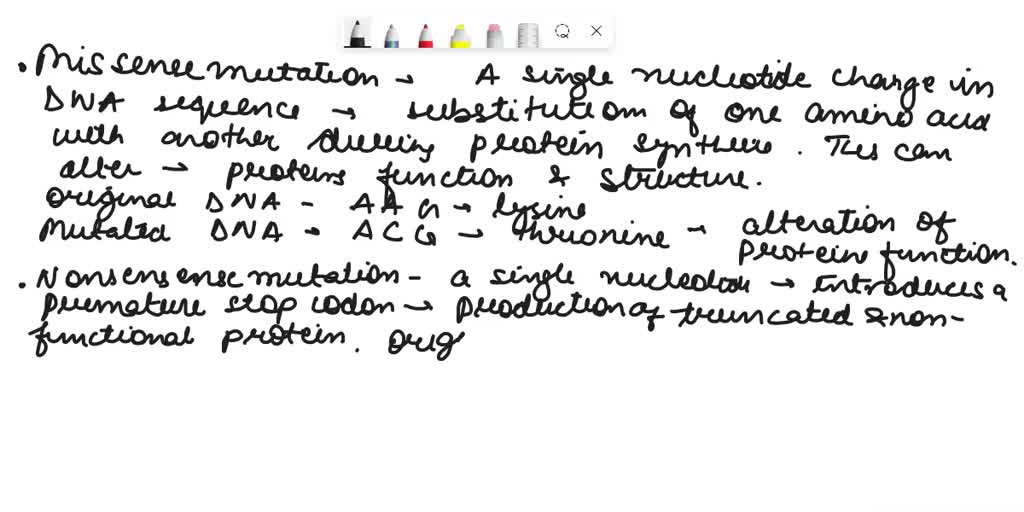 • Missense mutation → A single nucleotide change in
DNA sequence → substitution of one amino acid
with another during protein synthesis. This can
alter → proteins function & structure.
Original DNA - AAG → lysine
Mutated DNA - ACG → thrionine → alteration of
protein function.
• Nonsensense mutation - a single nucleotide → Introduces a
premature stop codon → production of truncated & non-
functional protein. Orig